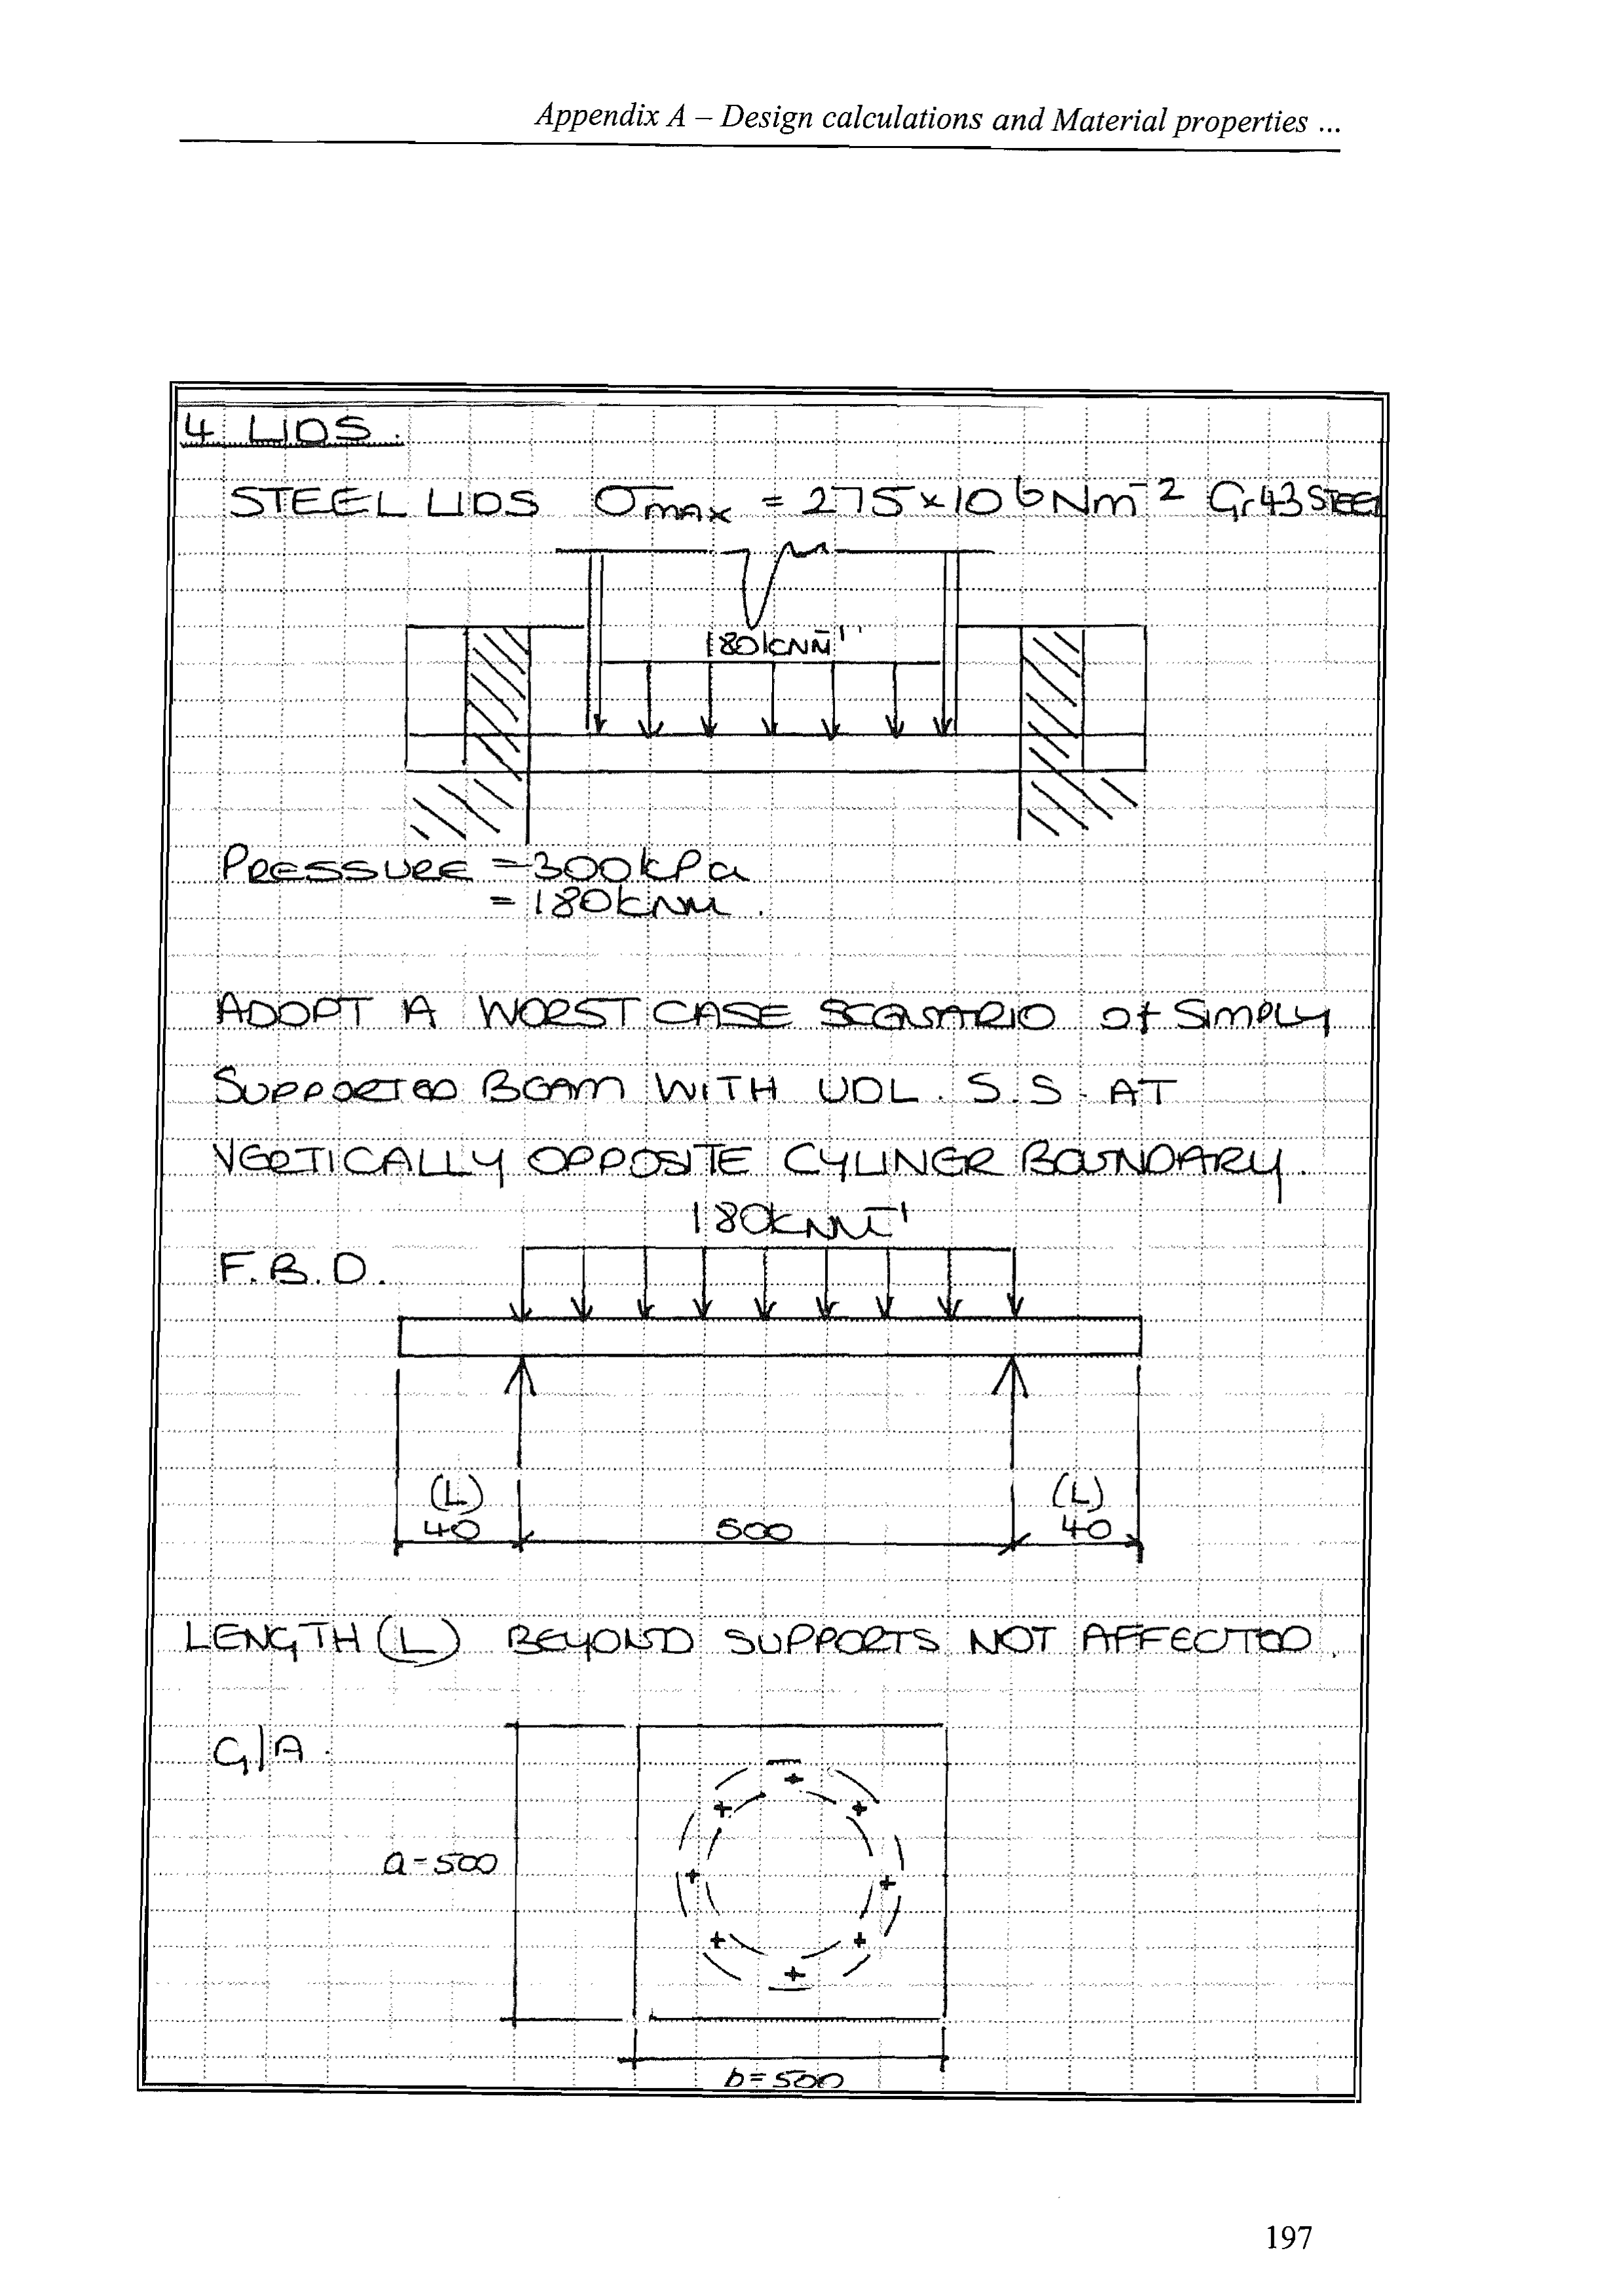 Appendix A – Design calculations and Material properties ...
4 LIDS.
STEEL LIDS σmax = 275×10 6 Nm-2 Gr43 STEEL
180kNm-1
PRESSURE = 300kPa
= 180kNm.
ADOPT A WORST CASE SCENARIO of SIMPLY
SUPPORTED BEAM WITH UDL. S.S. AT
VERTICALLY OPPOSITE CYLINER BOUNDARY.
180kNm-1
F.B.D.
(L) (L)
40 500 40
LENGTH (L) BEYOND SUPPORTS NOT AFFECTED.
G/A.
a-500
b=500
197